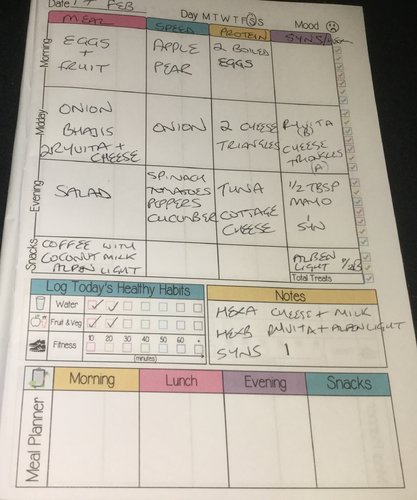 Date 17 FEB
Day M T W T F S S
Mood
MEAL SPEED PROTEIN SYNS/
Morning
EGGS
+
FRUIT
APPLE
PEAR
2 BOILED
EGGS
Midday
ONION
BHAJIS
2 RYVITA +
CHEESE
ONION
2 CHEESE
TRIANGLES
RYVITA
(B)
CHEESE
TRIANGLES
(A)
Evening
SALAD
SPINACH
TOMATOES
PEPPERS
CUCUMBER
TUNA
COTTAGE
CHEESE
1/2 TBSP
MAYO
1
SYN
Snacks
COFFEE WITH
COCONUT MILK
ALPEN LIGHT
ALPEN
LIGHT
Total Treats
Log Today's Healthy Habits
Water
Fruit & Veg
Fitness
10 20 30 40 50 60 +
(minutes)
Notes
HEXA CHEESE + MILK
HEXB RYVITA + ALPEN LIGHT
SYNS 1
Meal Planner
Morning Lunch Evening Snacks